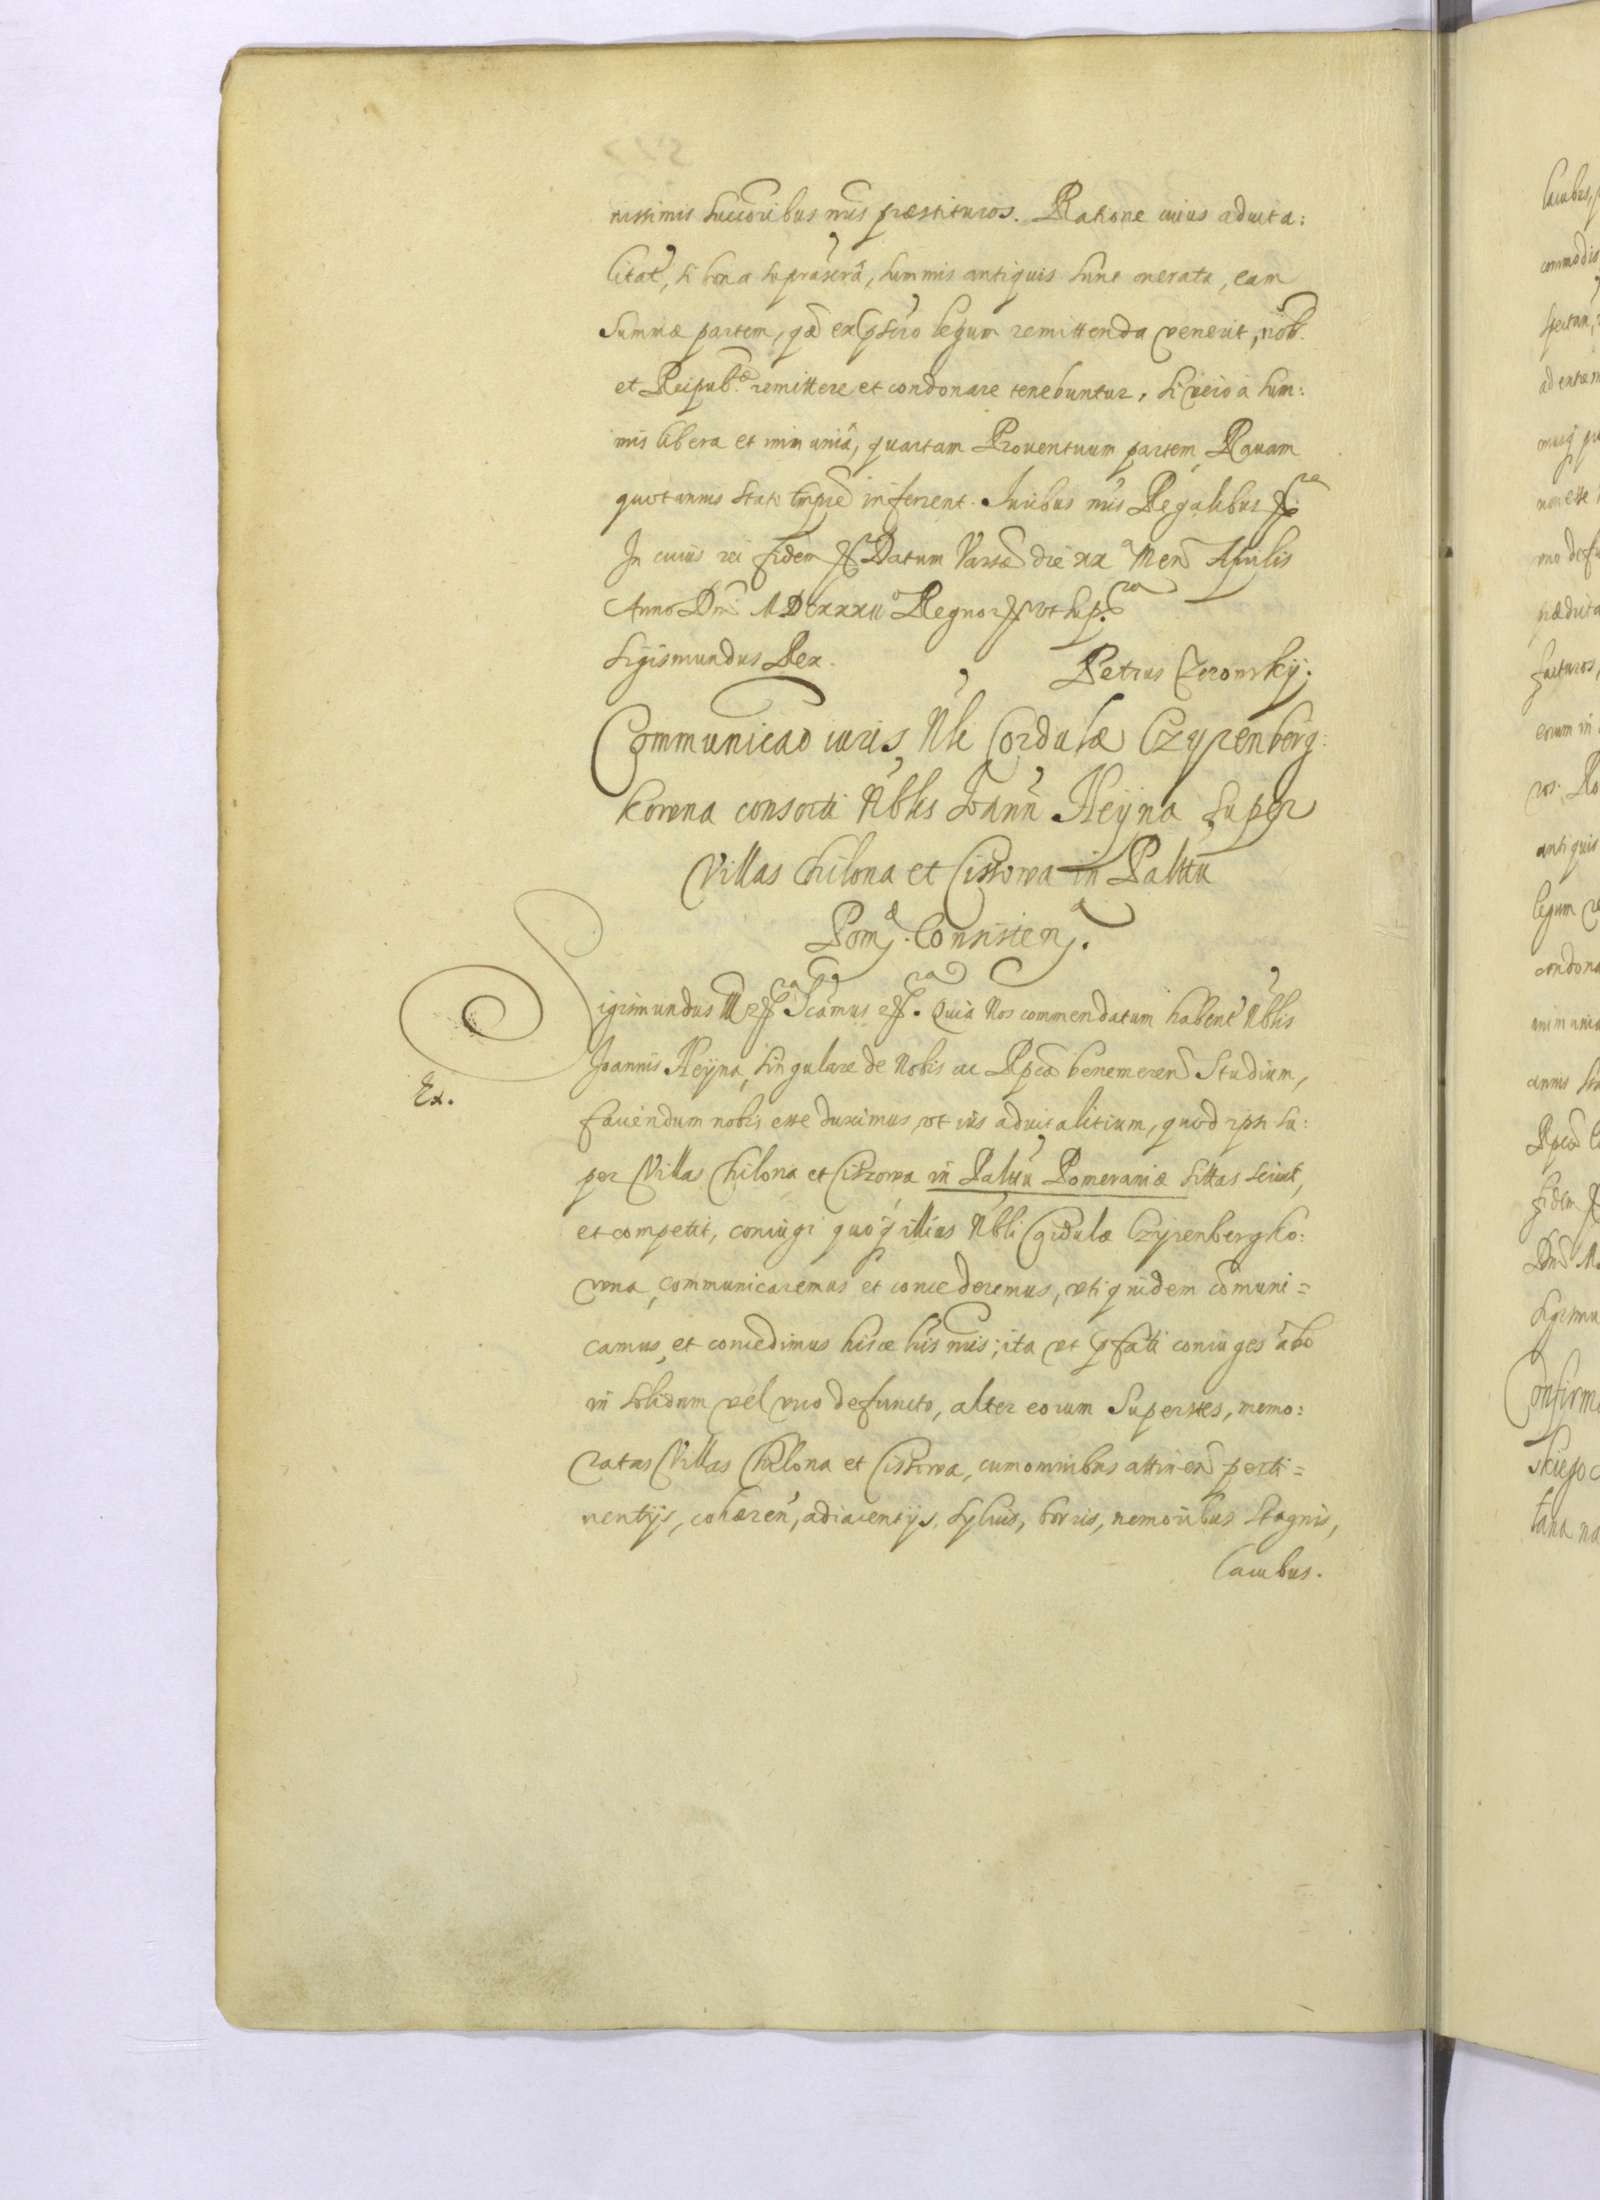 nissimis Succoribus nris præstituros. Ratione cuius aduita:
litat, si bona suprascra, summis antiquis sunt onerata, eam
Summæ partem, quæ ex pscro legum remittenda venerit, nob.
et Reipubcæ remittere et condonare tenebuntur, si vero a sum:
mis libera et immunia, quartam Prouentuum partem Rauam
quotannis stato tempre inferrent. Iuribus nris Regalibus
In cuius rei fidem Datum Varsae die xx Men Aprilis
Anno Dni MDCxxxii Regnor vt sup.
Sigismundus Rex.
Petrus Czeromsky.
Communicao iuris Nbli Cordulæ Czyrenberg:
kowna consorti Nblis Ioann Heyna super
Villas Chilona et Cissowa in Palttu
Pom. Consisten.
Sigismundus III etc. Scamus etc. Quia Nos commendatum habent Nblis
Ioannis Heyna, singulare de Nobis ac Rpca benemeren Studium,
Ex.
fauendum nobis esse duximus, vt ius aduitalitium, quod ipsi su:
per Villas Chilona et Cissowa in Palttu Pomeraniæ sittas seruit,
et competit, coniugi quoq illius Nbli Cordulæ Czyrenbergko:
wna, communicaremus et concederemus, vti quidem comuni=
camus, et concedimus hisce lris nris; ita vt pfati coniuges abo
in solidum vel vno defuncto, alter eorum Superstes, memo:
ratas Villas Chilona et Cissowa, cum omnibus attinen perti=
nentijs, cohæren, adiacentijs, syluis, borris, nemoribus Stagnis,
Lacubus.